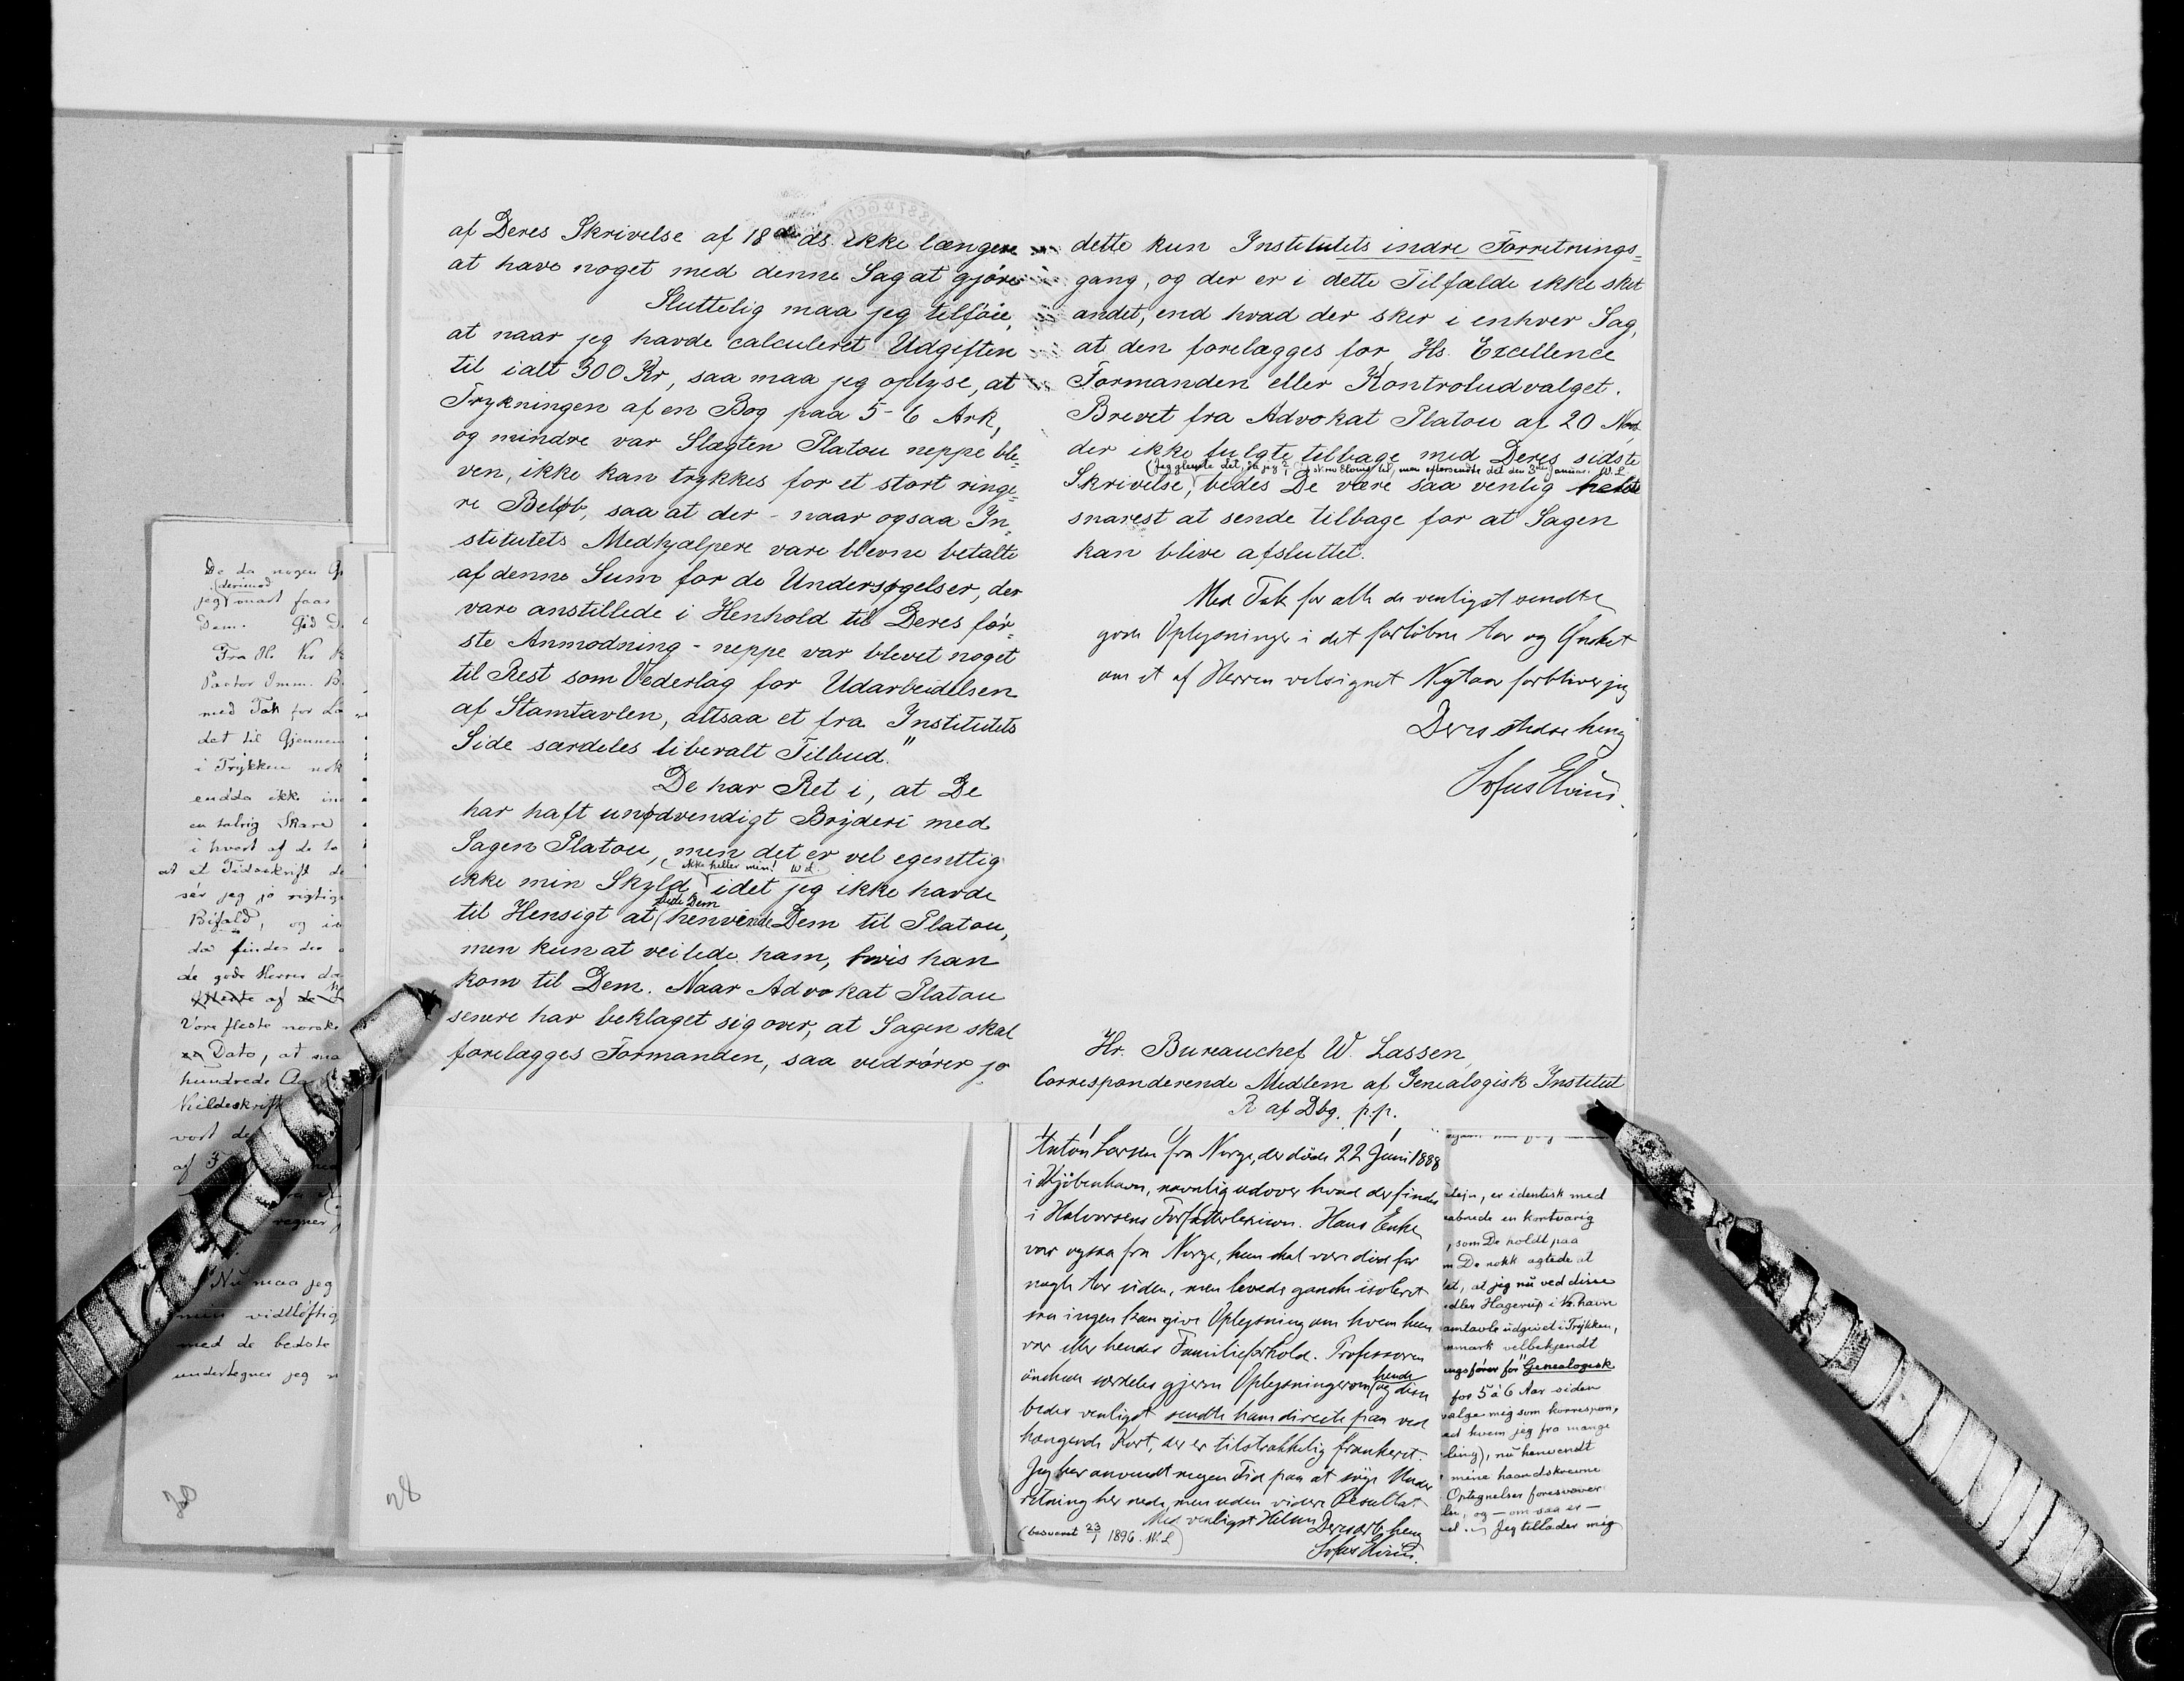 af Deres Skrivelse af 18de ds. ikke længere
at have noget med denne Sag at gjøre
Sluttelig maa jeg tilföie,
at naar jeg havde calculeret Udgiften
til ialt 300 Kr, saa maa jeg oplyse, at
Trykningen af en Bog paa 5-6 Ark,
og mindre var Slægten Platou neppe ble-
ven, ikke kan trykkes for et stort ringe-
re Beløb, saa at der - naar ogsaa In-
stitutets Medhjælpere vare blevne betalte
af denne Sum for de Undersøgelser, der
vare anstillede i Henhold til Deres för-
ste Anmodning - neppe var blevet noget
til Rest som Vederlag for Udarbeidelsen
af Stamtavlen, altsaa et fra Institutets
Side særdeles liberalt Tilbud."
De har Ret i, at De
har haft unødvendigt Bryderi med
Sagen Platou, men det er vel egentlig
(ikke heller min! W.L.)
ikke min Skyld, idet jeg ikke havde
til Hensigt at henvende Dem til Platou,
men kun at veilede ham, hvis han
kom til Dem. Naar Advokat Platou
senere har beklaget sig over, at Sagen skal
forelægges Formanden, saa vedrörer jo
dette kun Institutets indre Forretnings-
gang, og der er i dette Tilfælde ikke sket
andet, end hvad der sker i enhver Sag,
at den forelægges for Hs. Excellence
Formanden eller Kontroludvalget.
Brevet fra Advokat Platou af 20 Nov,
der ikke fulgte tilbage med Deres sidste
(Jeg glemte det, men eftersendte det den 3die Januar. W.L.
Skrivelse, bedes De være saa venlig
snarest at sende tilbage for at Sagen
kan blive afsluttet.
Med Tak for alle de venligst sendte
gode Oplysninger i det forløbne Aar og Ønsket
om et af Herren velsignet Nytaar forbliver jeg
Deres
Sofus Elvius.
Hr. Bureauchef W. Lassen,
Corresponderende Medlem af Genealogisk Institut
R af Dbg. p.p.
De da nogen
(derimod
jeg snart faar
Dem. Gid
Fra Hr.
Pastor Imm. B.
med Tak for
det til Gjennem
i Trykken nok
endda ikke
en talrig Skare
i hvert af de to
at et Tidsskrift
sér jeg jo rigtig
Bifald, og
da findes der
de gode Herrer
af
Vore fleste norske
Dato, at
hundrede
Kildeskrift
vort
af
regner
Nu maa jeg
min vidtløftig
med de bedste
undertegner jeg
20
28
Anton Larsen fra Norge, der döde 22 Juni 1888
i Kjöbenhavn, navnlig udover hvad der findes
i Halvorsens Forfatterlexicon. Hans Enke
var ogsaa fra Norge, hun skal være död for
nogle Aar siden, men levede ganske isoleret
saa ingen kan give Oplysning om hvem hun
var eller hendes Familieforhold. Professoren
önskede særdeles gjerne Oplysninger om hende og disse
bedes venligst sendte ham directe paa ved
hængende Kort, der er tilstrækkelig frankeret.
Jeg har anvendt megen Tid paa at söge Under
retning her nede, men uden videre Resultat.
Med venligst Hilsen
(besvaret 23/1 1896. W.L.)
Sofus Elvius.
er identisk med
en kortvarig
, som De holdt paa
De nokk agtede at
at jeg nu ved disse
Hagerup i Kr.havn
udgivet i Trykken,
velbekjendt
for "Genealogisk
for 5 à 6 Aar siden
mig som korrespon-
hvem jeg fra mange
nu henvendt
mine haandskrevne
Optegnelser foresvæver
og - om saa er -
Jeg tillader mig